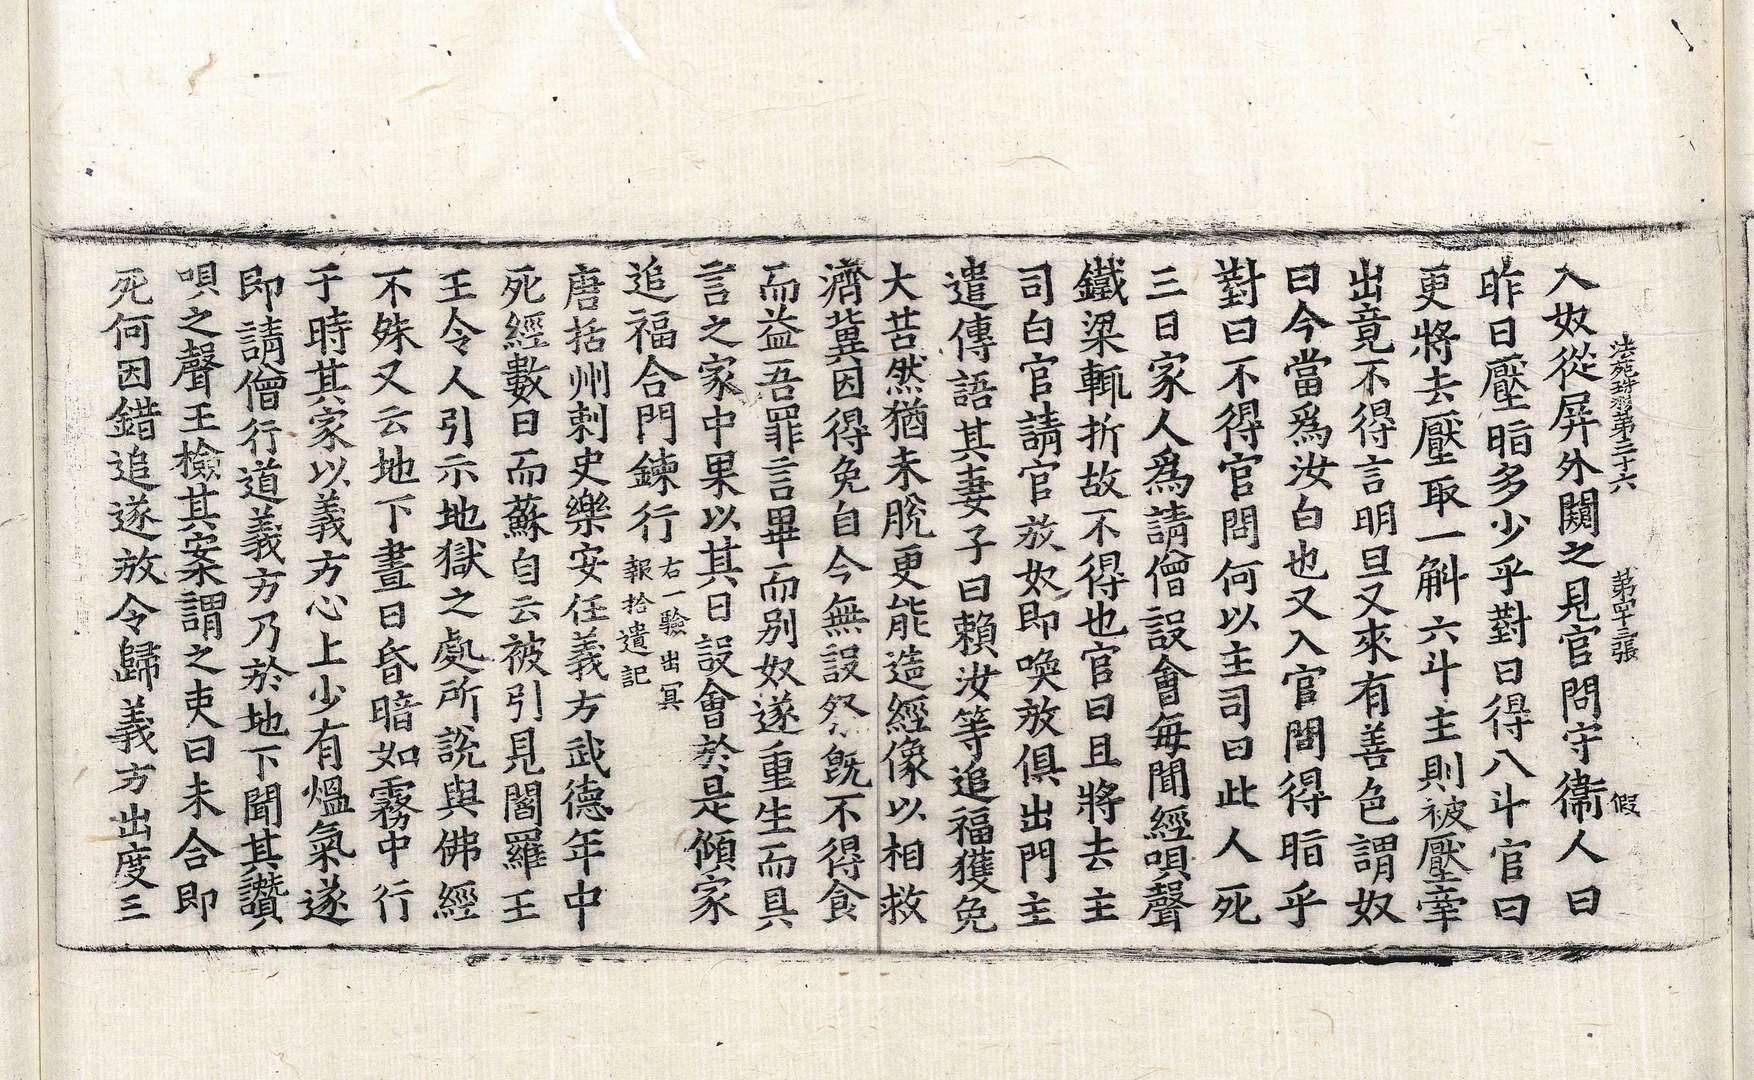 法苑珠林第三十六 第四十三張 假
入奴從屏外闚之見官問守衛人曰
昨日壓脂多少乎對曰得八斗官曰
更將去壓取一斛六斗主則被壓牽
出竟不得言明旦又來有善色謂奴
曰今當爲汝白也又入官問得脂乎
對曰不得官問何以主司曰此人死
三日家人爲請僧設會每聞經唄聲
鐵梁輒折故不得也官曰且將去主
司白官請官放奴即喚放俱出門主
遣傳語其妻子曰賴汝等追福獲免
大苦然猶未脫更能造經像以相救
濟冀因得免自今無設祭既不得食
而益吾罪言畢而別奴遂重生而具
言之家中果以其日設會於是傾家
追福合門鍊行右一驗出冥
報拾遺記
唐括州刺史樂安任義方武德年中
死經數日而蘇自云被引見閻羅王
王令人引示地獄之處所說與佛經
不殊又云地下晝日昏暗如霧中行
于時其家以義方心上少有熅氣遂
即請僧行道義方乃於地下聞其讚
唄之聲王檢其案謂之吏曰未合即
死何因錯追遂放令歸義方出度三